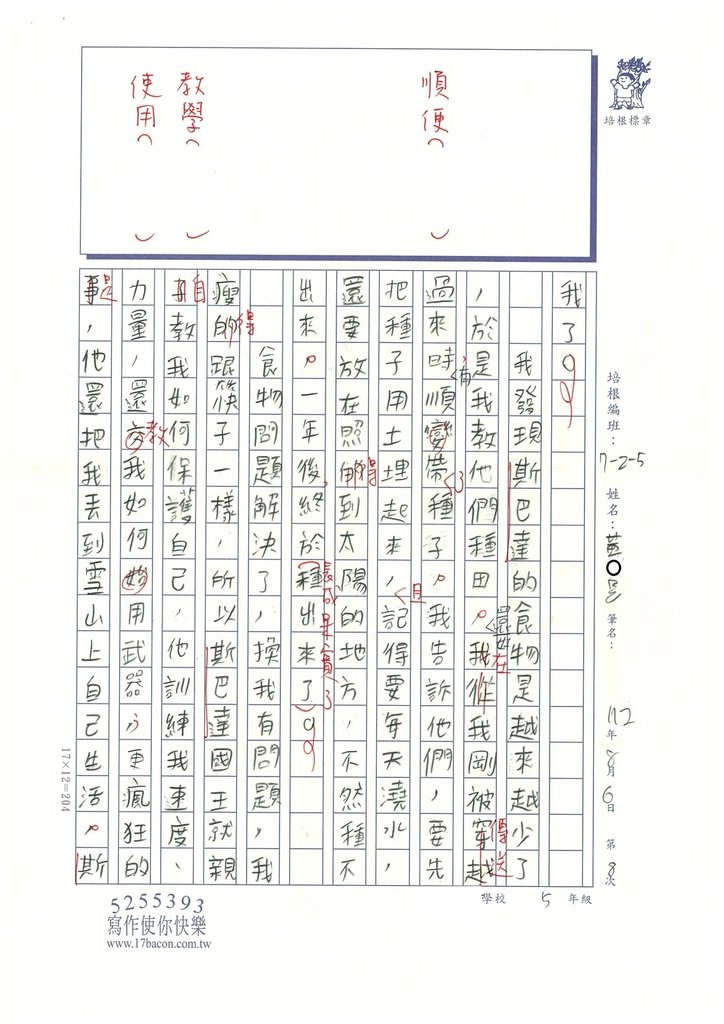 培根標章
順便（ ）
教學（ ）
使用（ ）
培根編班：7-2-5 姓名：黃○ 筆名： 112年8月6日 第8次
我了。
我發現斯巴達的食物是越來越少了
，於是我教他們種田。我從我剛被穿越
還好在
傳送
過來時順變帶種子。我告訴他們，要先
，有
了
把種子用土埋起來，記得要每天澆水，
且
還要放在照的到太陽的地方，不然種不
得
出來。一年後終於種出來了。
長成果實了
食物問題解決了，換我有問題，我
瘦的跟筷子一樣，所以斯巴達國王就親
得
教我如何保護自己，他訓練我速度、
自
力量，還交我如何始用武器，更瘋狂的
教
事，他還把我丟到雪山上自己生活。斯
是
17×12=204
學校 5 年級
5255393
寫作使你快樂
www.17bacon.com.tw